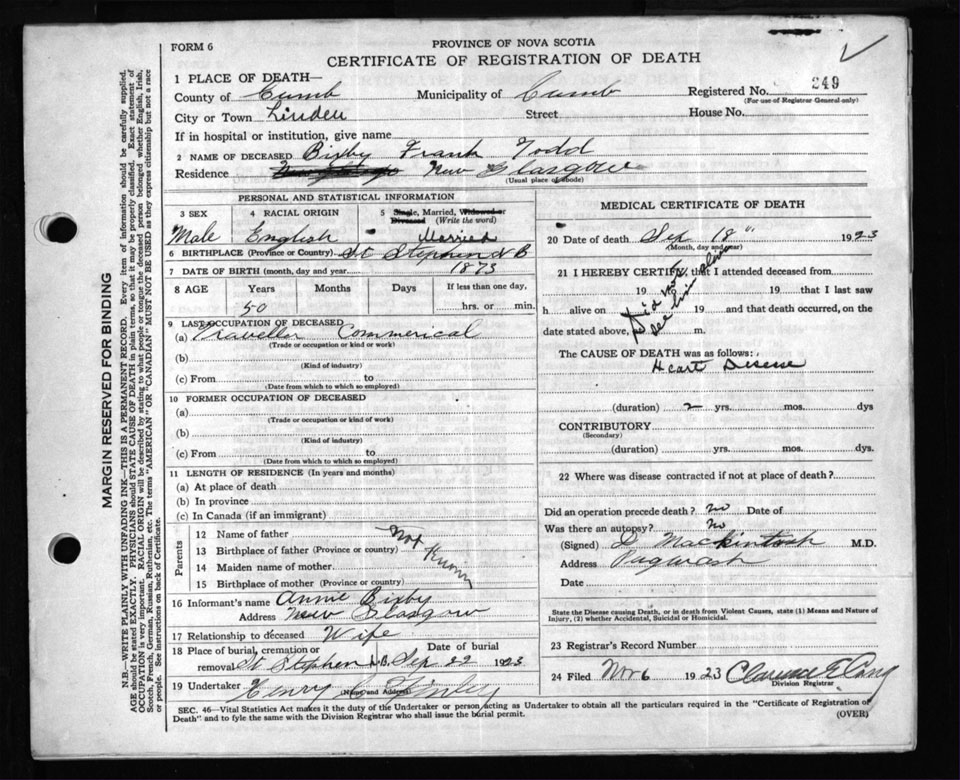 FORM 6
PROVINCE OF NOVA SCOTIA
CERTIFICATE OF REGISTRATION OF DEATH
249
1 PLACE OF DEATH—
County of Cumb Municipality of Cumb Registered No.
(For use of Registrar General only)
City or Town Linden Street House No.
If in hospital or institution, give name
2 NAME OF DECEASED Bixby Frank Todd
Residence New Glasgow
(Usual place of abode)
PERSONAL AND STATISTICAL INFORMATION
3 SEX 4 RACIAL ORIGIN 5 Single, Married, Widowed or Divorced (Write the word)
Male English Married
6 BIRTHPLACE (Province or Country) St Stephen NB
7 DATE OF BIRTH (month, day and year) 1873
8 AGE Years Months Days If less than one day,
50 hrs. or min.
9 LAST OCCUPATION OF DECEASED
(a) Traveller Commerical
(Trade or occupation or kind or work)
(b)
(Kind of industry)
(c) From to
(Date from which to which so employed)
10 FORMER OCCUPATION OF DECEASED
(a)
(Trade or occupation or kind of work)
(b)
(Kind of industry)
(c) From to
(Date from which to which so employed)
11 LENGTH OF RESIDENCE (In years and months)
(a) At place of death
(b) In province
(c) In Canada (if an immigrant)
Parents
12 Name of father Not
13 Birthplace of father (Province or country) Known
14 Maiden name of mother
15 Birthplace of mother (Province or country)
16 Informant's name Annie Bixby
Address New Glasgow
17 Relationship to deceased Wife
18 Place of burial, cremation or Date of burial
removal St Stephen N.B. Sep 22 1923
19 Undertaker Henry C Finley
(Name and Address)
MEDICAL CERTIFICATE OF DEATH
20 Date of death Sep 18" 1923
(Month, day and year)
21 I HEREBY CERTIFY, that I attended deceased from
19 19 that I last saw
h alive on 19 and that death occurred, on the
date stated above, m.
Did not
see him alive
The CAUSE OF DEATH was as follows:
Heart Disese
(duration) 2 yrs. mos. dys
CONTRIBUTORY
(Secondary)
(duration) yrs. mos. dys
22 Where was disease contracted if not at place of death?
Did an operation precede death? no Date of
Was there an autopsy? No
(Signed) D Mackintosh M.D.
Address Pugwash
Date
State the Disease causing Death, or in death from Violent Causes, state (1) Means and Nature of
Injury, (2) whether Accidental, Suicidal or Homicidal.
23 Registrar's Record Number
24 Filed Nov 6 1923
Division Registrar
SEC. 46—Vital Statistics Act makes it the duty of the Undertaker or person acting as Undertaker to obtain all the particulars required in the "Certificate of Registration of
Death" and to fyle the same with the Division Registrar who shall issue the burial permit.
(OVER)
MARGIN RESERVED FOR BINDING
N.B.—WRITE PLAINLY WITH UNFADING INK—THIS IS A PERMANENT RECORD. Every item of information should be carefully supplied.
AGE should be stated EXACTLY. PHYSICIANS should STATE CAUSE OF DEATH in plain terms, so that it may be properly classified. Exact statement of
OCCUPATION is very important. RACIAL ORIGIN will be described by stating to what people or tongue the deceased person belonged whether English, Irish,
Scotch, French, German, Russian, Ruthenian, etc. The terms "AMERICAN" OR "CANADIAN" MUST NOT BE USED as they express citizenship but not a race
or people. See instructions on back of Certificate.